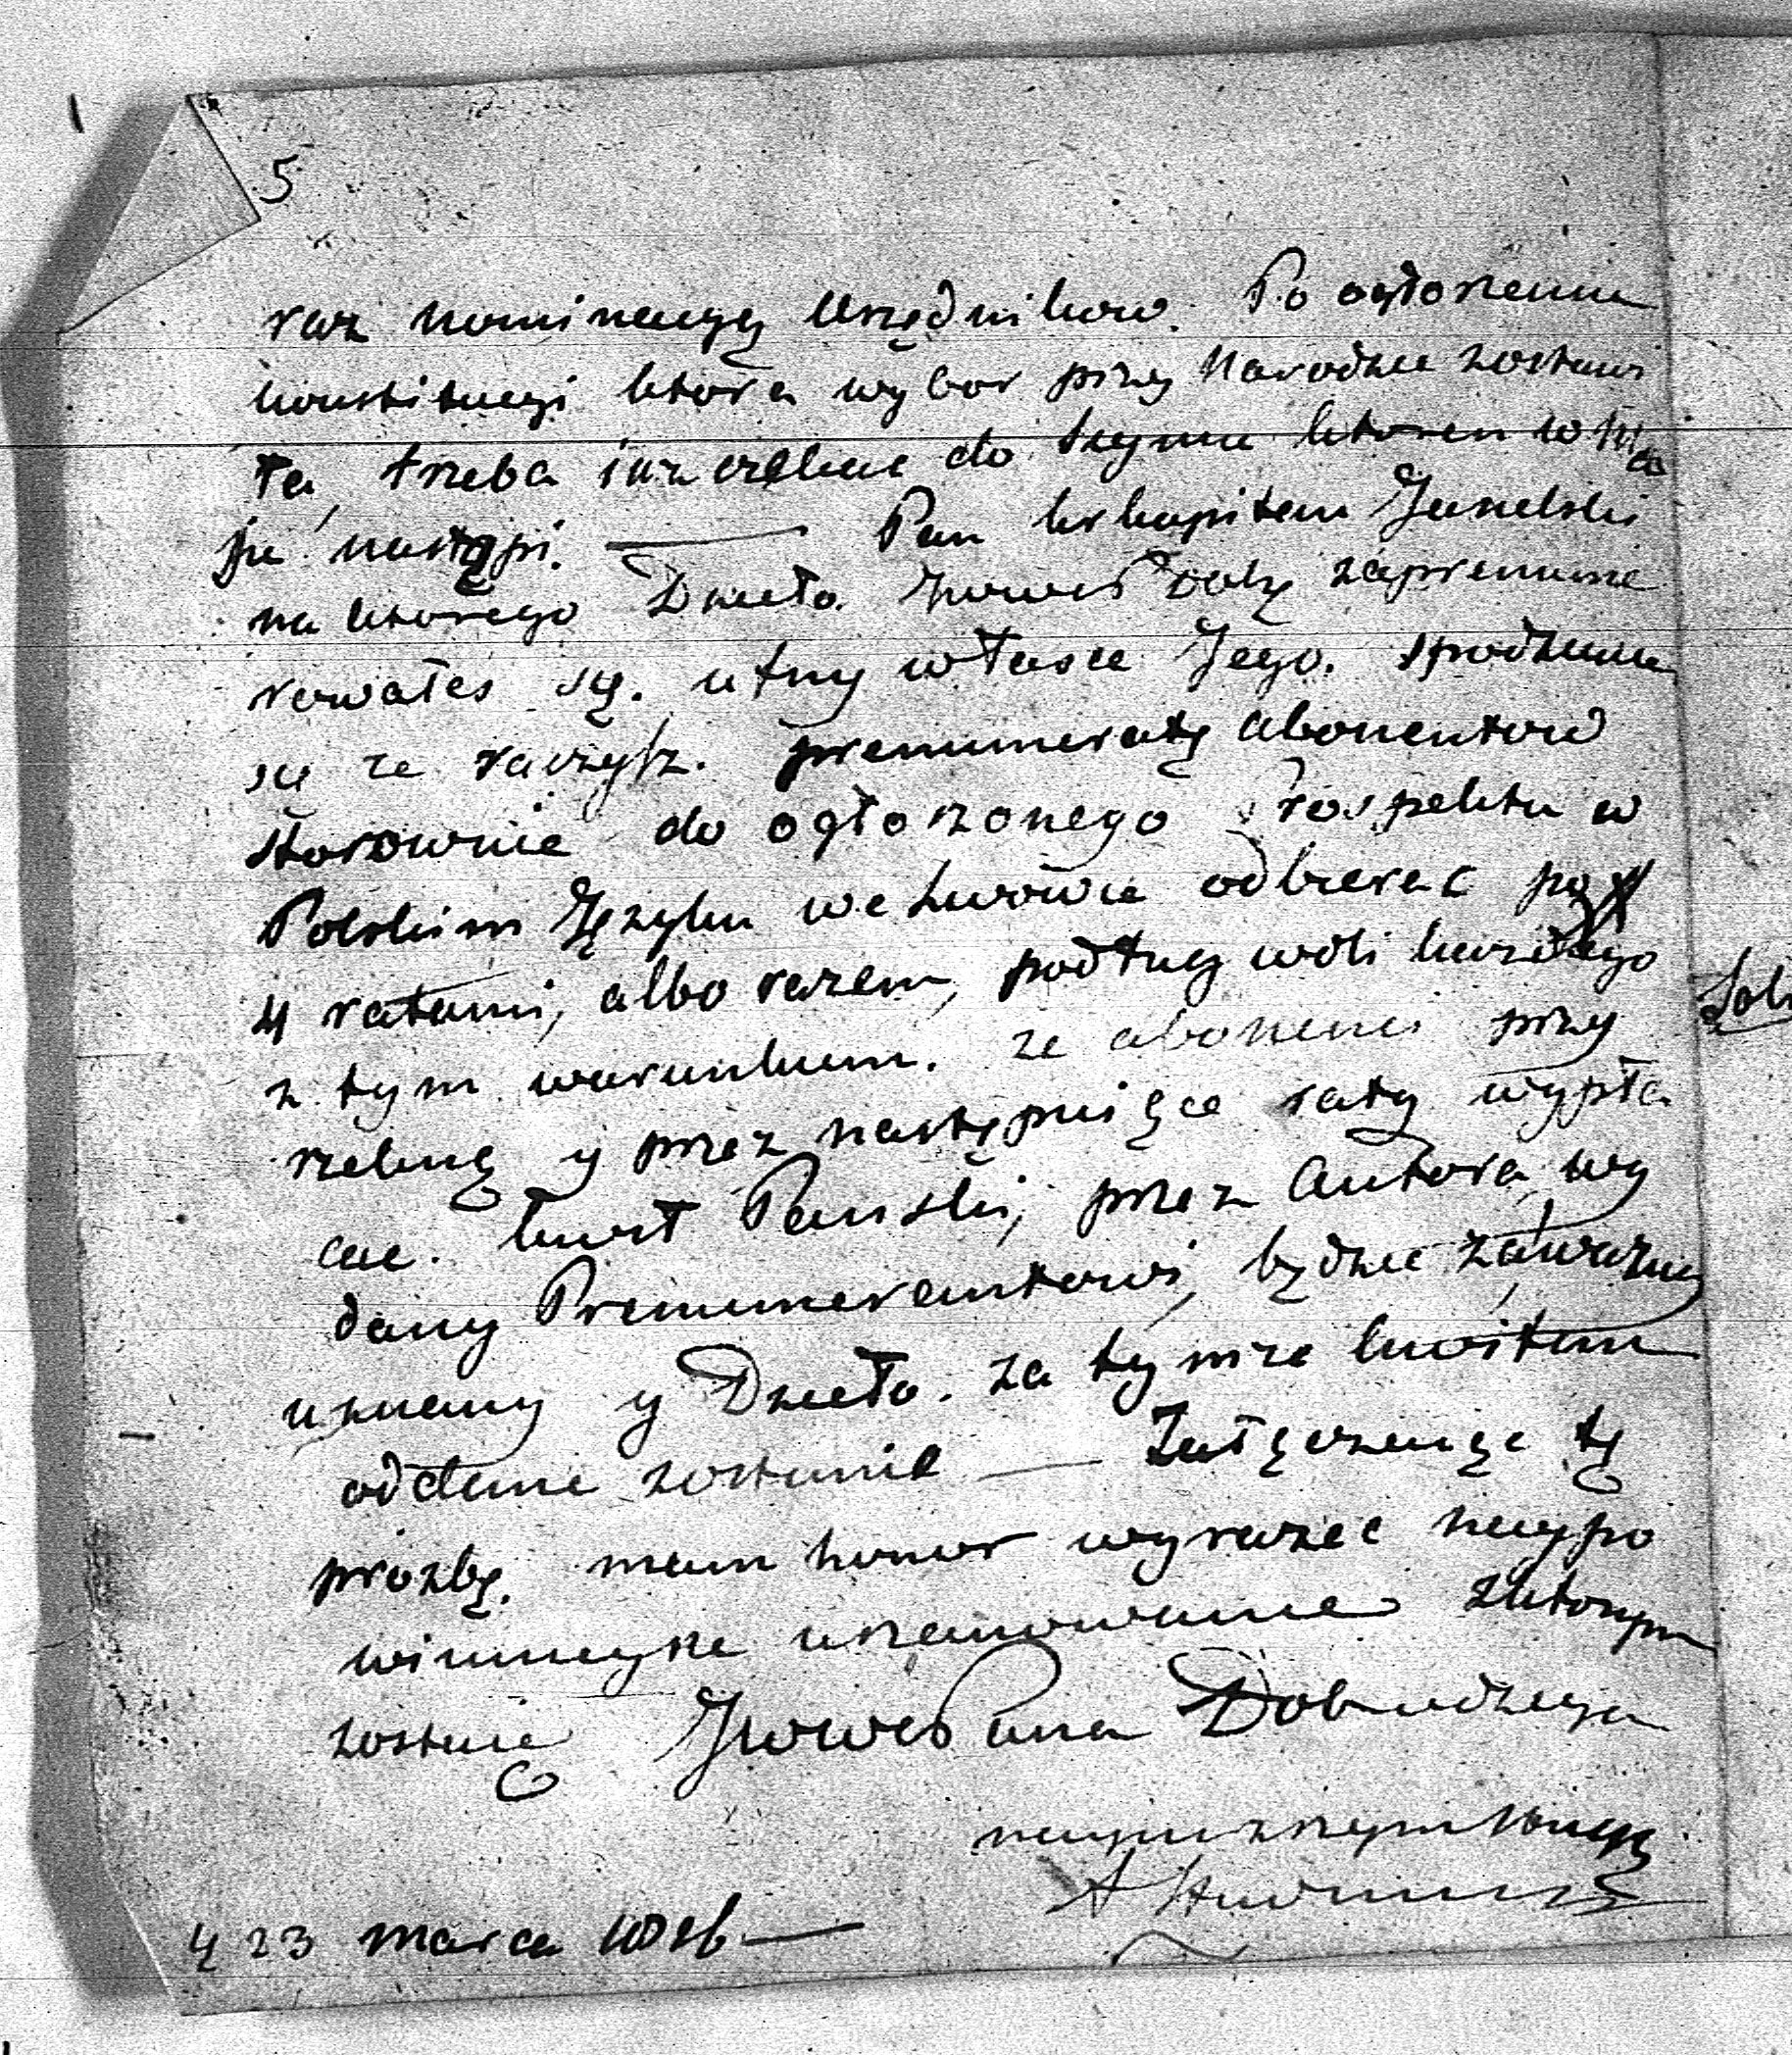 5
raz nominacyą Urzędnikow. Po ogłoszeniu
konstitucyi ktora wybor przy Narodzie zostawi
ła, trzeba iuz czekac do Seymu ktoren w Ma
ju nastąpi. — Pan kapitan
na ktorego Dzieło JwwPDobr zaprenume
rowałes się. ufny w łasce Jego. spodziewa
się ze raczysz. prenumeratę abonentow
stosownie do ogłoszonego Prospektu w
Polskim Języku we Lwowie odbierac
4 ratami, albo razem, podług woli kazdego
z tym warunkiem. ze abonenci przy
rzekną y przez następuiące raty wypła
cac. kwit Panski, przez Autora wy
dany Prenumerantowi, będzie za wazny
uznany y Dzieło. za tymze kwitem
oddane zostanie — Załączaiąc tę
prozbę. mam honor wyrazic naypo
winnieysze uszanowanie z ktorym
zostaię JwwPana Dobrodzieja
naynizszym sługą
23 marca